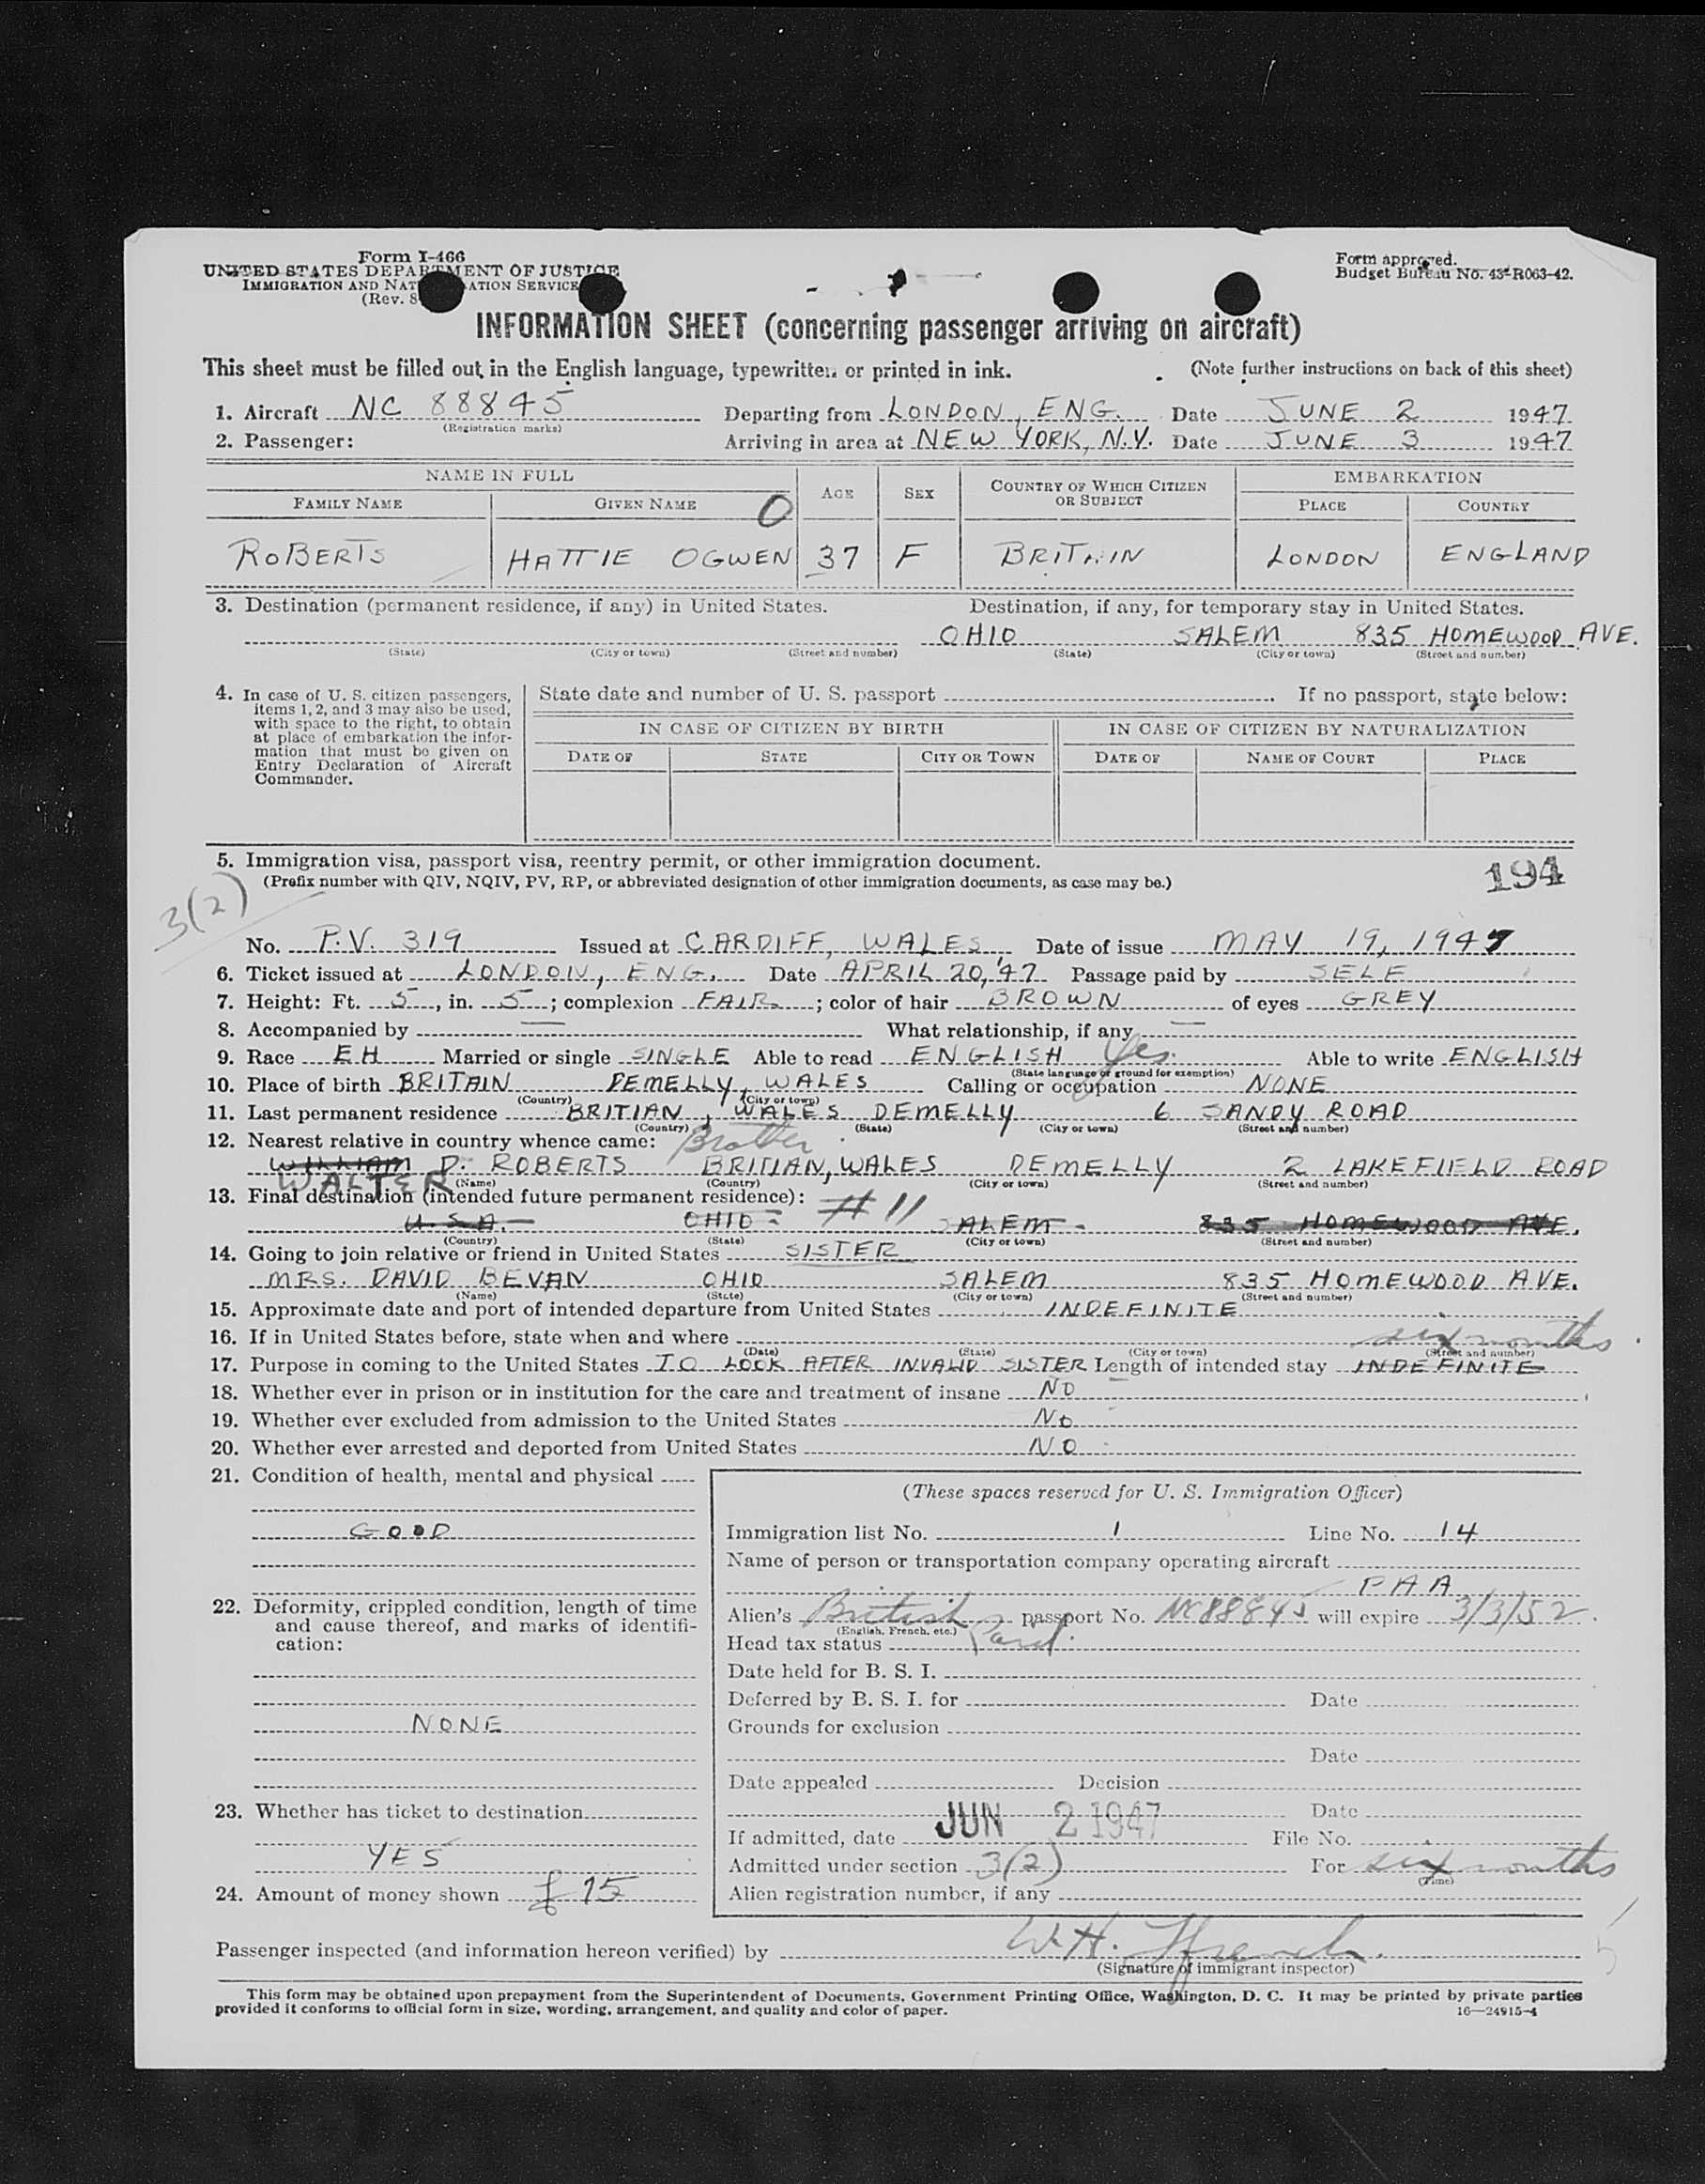 Form I-466
UNITED STATES DEPARTMENT OF JUSTICE
IMMIGRATION AND NAT ATION SERVICE
(Rev. 8
Form approved.
Budget Bureau No. 43-R063-42.
INFORMATION SHEET (concerning passenger arriving on aircraft)
This sheet must be filled out in the English language, typewritten or printed in ink. (Note further instructions on back of this sheet)
1. Aircraft NC 88845 Departing from LONDON, ENG. Date JUNE 2 1947
(Registration marks)
2. Passenger: Arriving in area at NEW YORK, N.Y. Date JUNE 3 1947
NAME IN FULL AGE SEX COUNTRY OF WHICH CITIZEN OR SUBJECT EMBARKATION
FAMILY NAME GIVEN NAME 0 PLACE COUNTRY
ROBERTS HATTIE OGWEN 37 F BRITAIN LONDON ENGLAND
3. Destination (permanent residence, if any) in United States. Destination, if any, for temporary stay in United States.
OHIO SALEM 835 HOMEWOOD AVE.
(State) (City or town) (Street and number) (State) (City or town) (Street and number)
4. In case of U. S. citizen passengers, items 1, 2, and 3 may also be used, with space to the right, to obtain at place of embarkation the information that must be given on Entry Declaration of Aircraft Commander.
State date and number of U. S. passport If no passport, state below:
IN CASE OF CITIZEN BY BIRTH IN CASE OF CITIZEN BY NATURALIZATION
DATE OF STATE CITY OR TOWN DATE OF NAME OF COURT PLACE
5. Immigration visa, passport visa, reentry permit, or other immigration document. 194
(Prefix number with QIV, NQIV, PV, RP, or abbreviated designation of other immigration documents, as case may be.)
3(2)
No. P.V. 319 Issued at CARDIFF, WALES Date of issue MAY 19, 1947
6. Ticket issued at LONDON, ENG. Date APRIL 20, '47 Passage paid by SELF
7. Height: Ft. 5, in. 5; complexion FAIR; color of hair BROWN of eyes GREY
8. Accompanied by — What relationship, if any —
9. Race EH Married or single SINGLE Able to read ENGLISH Yes Able to write ENGLISH
(State language or ground for exemption)
10. Place of birth BRITAIN PEMELLY, WALES Calling or occupation NONE
(Country) (City or town)
11. Last permanent residence BRITIAN, WALES DEMELLY 6 SANDY ROAD
(Country) (State) (City or town) (Street and number)
12. Nearest relative in country whence came: Brother
WILLIAM D. ROBERTS BRITIAN, WALES DEMELLY 2 LAKEFIELD ROAD
WALTER (Name) (Country) (City or town) (Street and number)
13. Final destination (intended future permanent residence): # 11
U.S.A. OHIO SALEM 835 HOMEWOOD AVE.
(Country) (State) (City or town) (Street and number)
14. Going to join relative or friend in United States SISTER
MRS. DAVID BEVAN OHIO SALEM 835 HOMEWOOD AVE.
(Name) (State) (City or town) (Street and number)
15. Approximate date and port of intended departure from United States INDEFINITE
16. If in United States before, state when and where six months
(Date) (State) (City or town) (Street and number)
17. Purpose in coming to the United States TO LOOK AFTER INVALID SISTER Length of intended stay INDEFINITE
18. Whether ever in prison or in institution for the care and treatment of insane NO
19. Whether ever excluded from admission to the United States NO
20. Whether ever arrested and deported from United States NO
21. Condition of health, mental and physical
GOOD
22. Deformity, crippled condition, length of time and cause thereof, and marks of identification:
NONE
23. Whether has ticket to destination
YES
24. Amount of money shown £ 15
(These spaces reserved for U. S. Immigration Officer)
Immigration list No. 1 Line No. 14
Name of person or transportation company operating aircraft
PAA
Alien's British passport No. NC88845 will expire 3/3/52
(English, French, etc.)
Head tax status Paid.
Date held for B. S. I.
Deferred by B. S. I. for Date
Grounds for exclusion
Date
Date appealed Decision
Date
If admitted, date JUN 2 1947 File No.
Admitted under section 3(2) For six months
(Time)
Alien registration number, if any
Passenger inspected (and information hereon verified) by W.H. Ffrench.
(Signature of immigrant inspector)
This form may be obtained upon prepayment from the Superintendent of Documents, Government Printing Office, Washington, D. C. It may be printed by private parties
provided it conforms to official form in size, wording, arrangement, and quality and color of paper. 16—24915-4